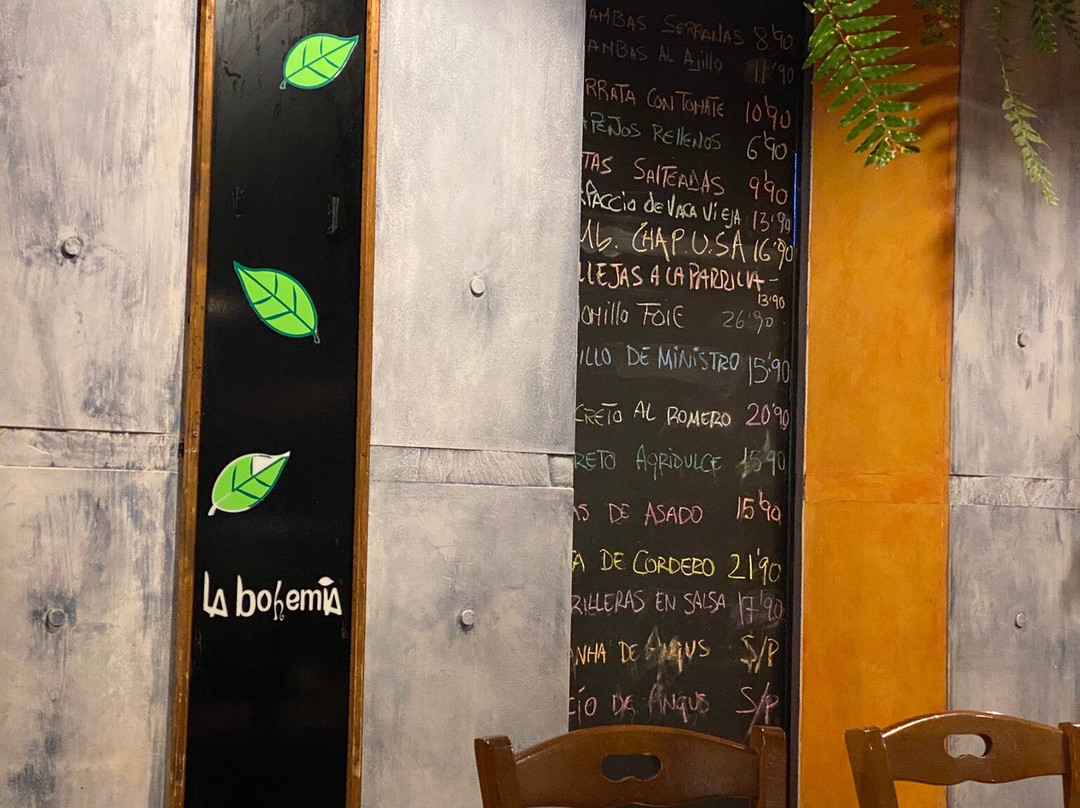 la bohemia
AMBAS SERRANAS 8'90
AMBAS AL AJIllO 11'90
RRATA CON TOMATE 10'90
PEÑOS REllENOS 6'90
TAS SALTEADAS 9'90
PACCIO de VACA VIEJA 13'90
CHAP U.SA 16'90
LLEJAS A LA PARRILLA - 13'90
OMIllo FOIE 26'90
ILLO DE MINISTRO 15'90
CRETO AL ROMERO 20'90
RETO AGRIDULCE 15'90
AS DE ASADO 15'90
A DE CORDERO 21'90
RILLERAS EN SALSA 17'90
ANHA DE ANGUS S/P
CÍO DE ANGUS S/P